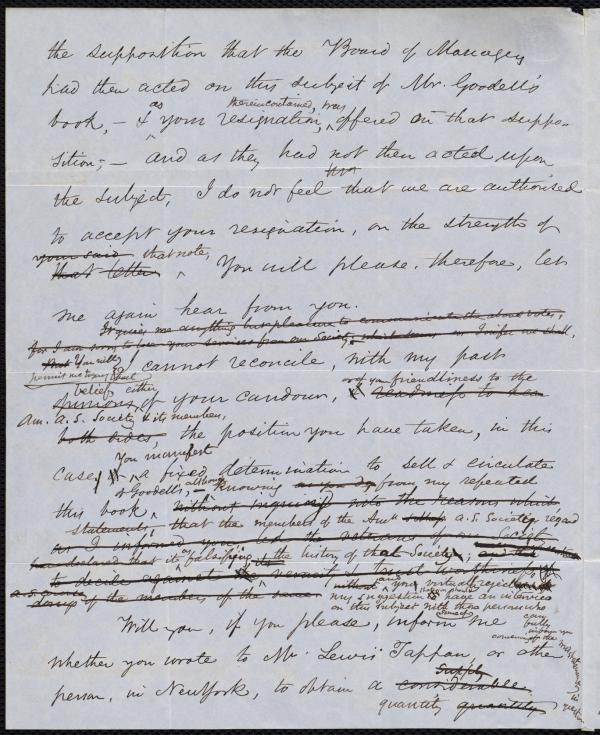 the supposition that the Board of Managers
had then acted on this subject of Mr. Goodell's
as therein contained, was
book, — & your resignation, offered on that suppo-
sition; — and as they had not then acted upon
the subject, I do not feel that we are authorised
to accept your resignation, on the strength of
your said that note,
that letter. You will please, therefore, let
me again hear from you.
It gives me anything but pleasure to communicate the above votes,
for I am sorry to lose your services from our Society, which I infer we shall,
that You will
permit me to say that I cannot reconcile, with my past
belief either or of your friendliness to the
opinions of your candour, & readiness to hear
Am. A. S. Society & its members,
both sides, the position you have taken, in this
You manifest
case, a fixed determination to sell & circulate
of Goodell's, although knowing as you do from my repeated
this book without inquiring into the reasons which
statements, that the members of the A. S. Society regard
as I informed you, led the veterans of our Society
declared that it as falsifying the history of that Society, and
to decide against
you virtually reject
of the member of the same my suggestion to have an interview
on this subject with those persons who
Will you, if you please, inform me
whether you wrote to Mr. Lewis Tappan, or other
supply
person, in New York, to obtain a considerable
quantity quantity